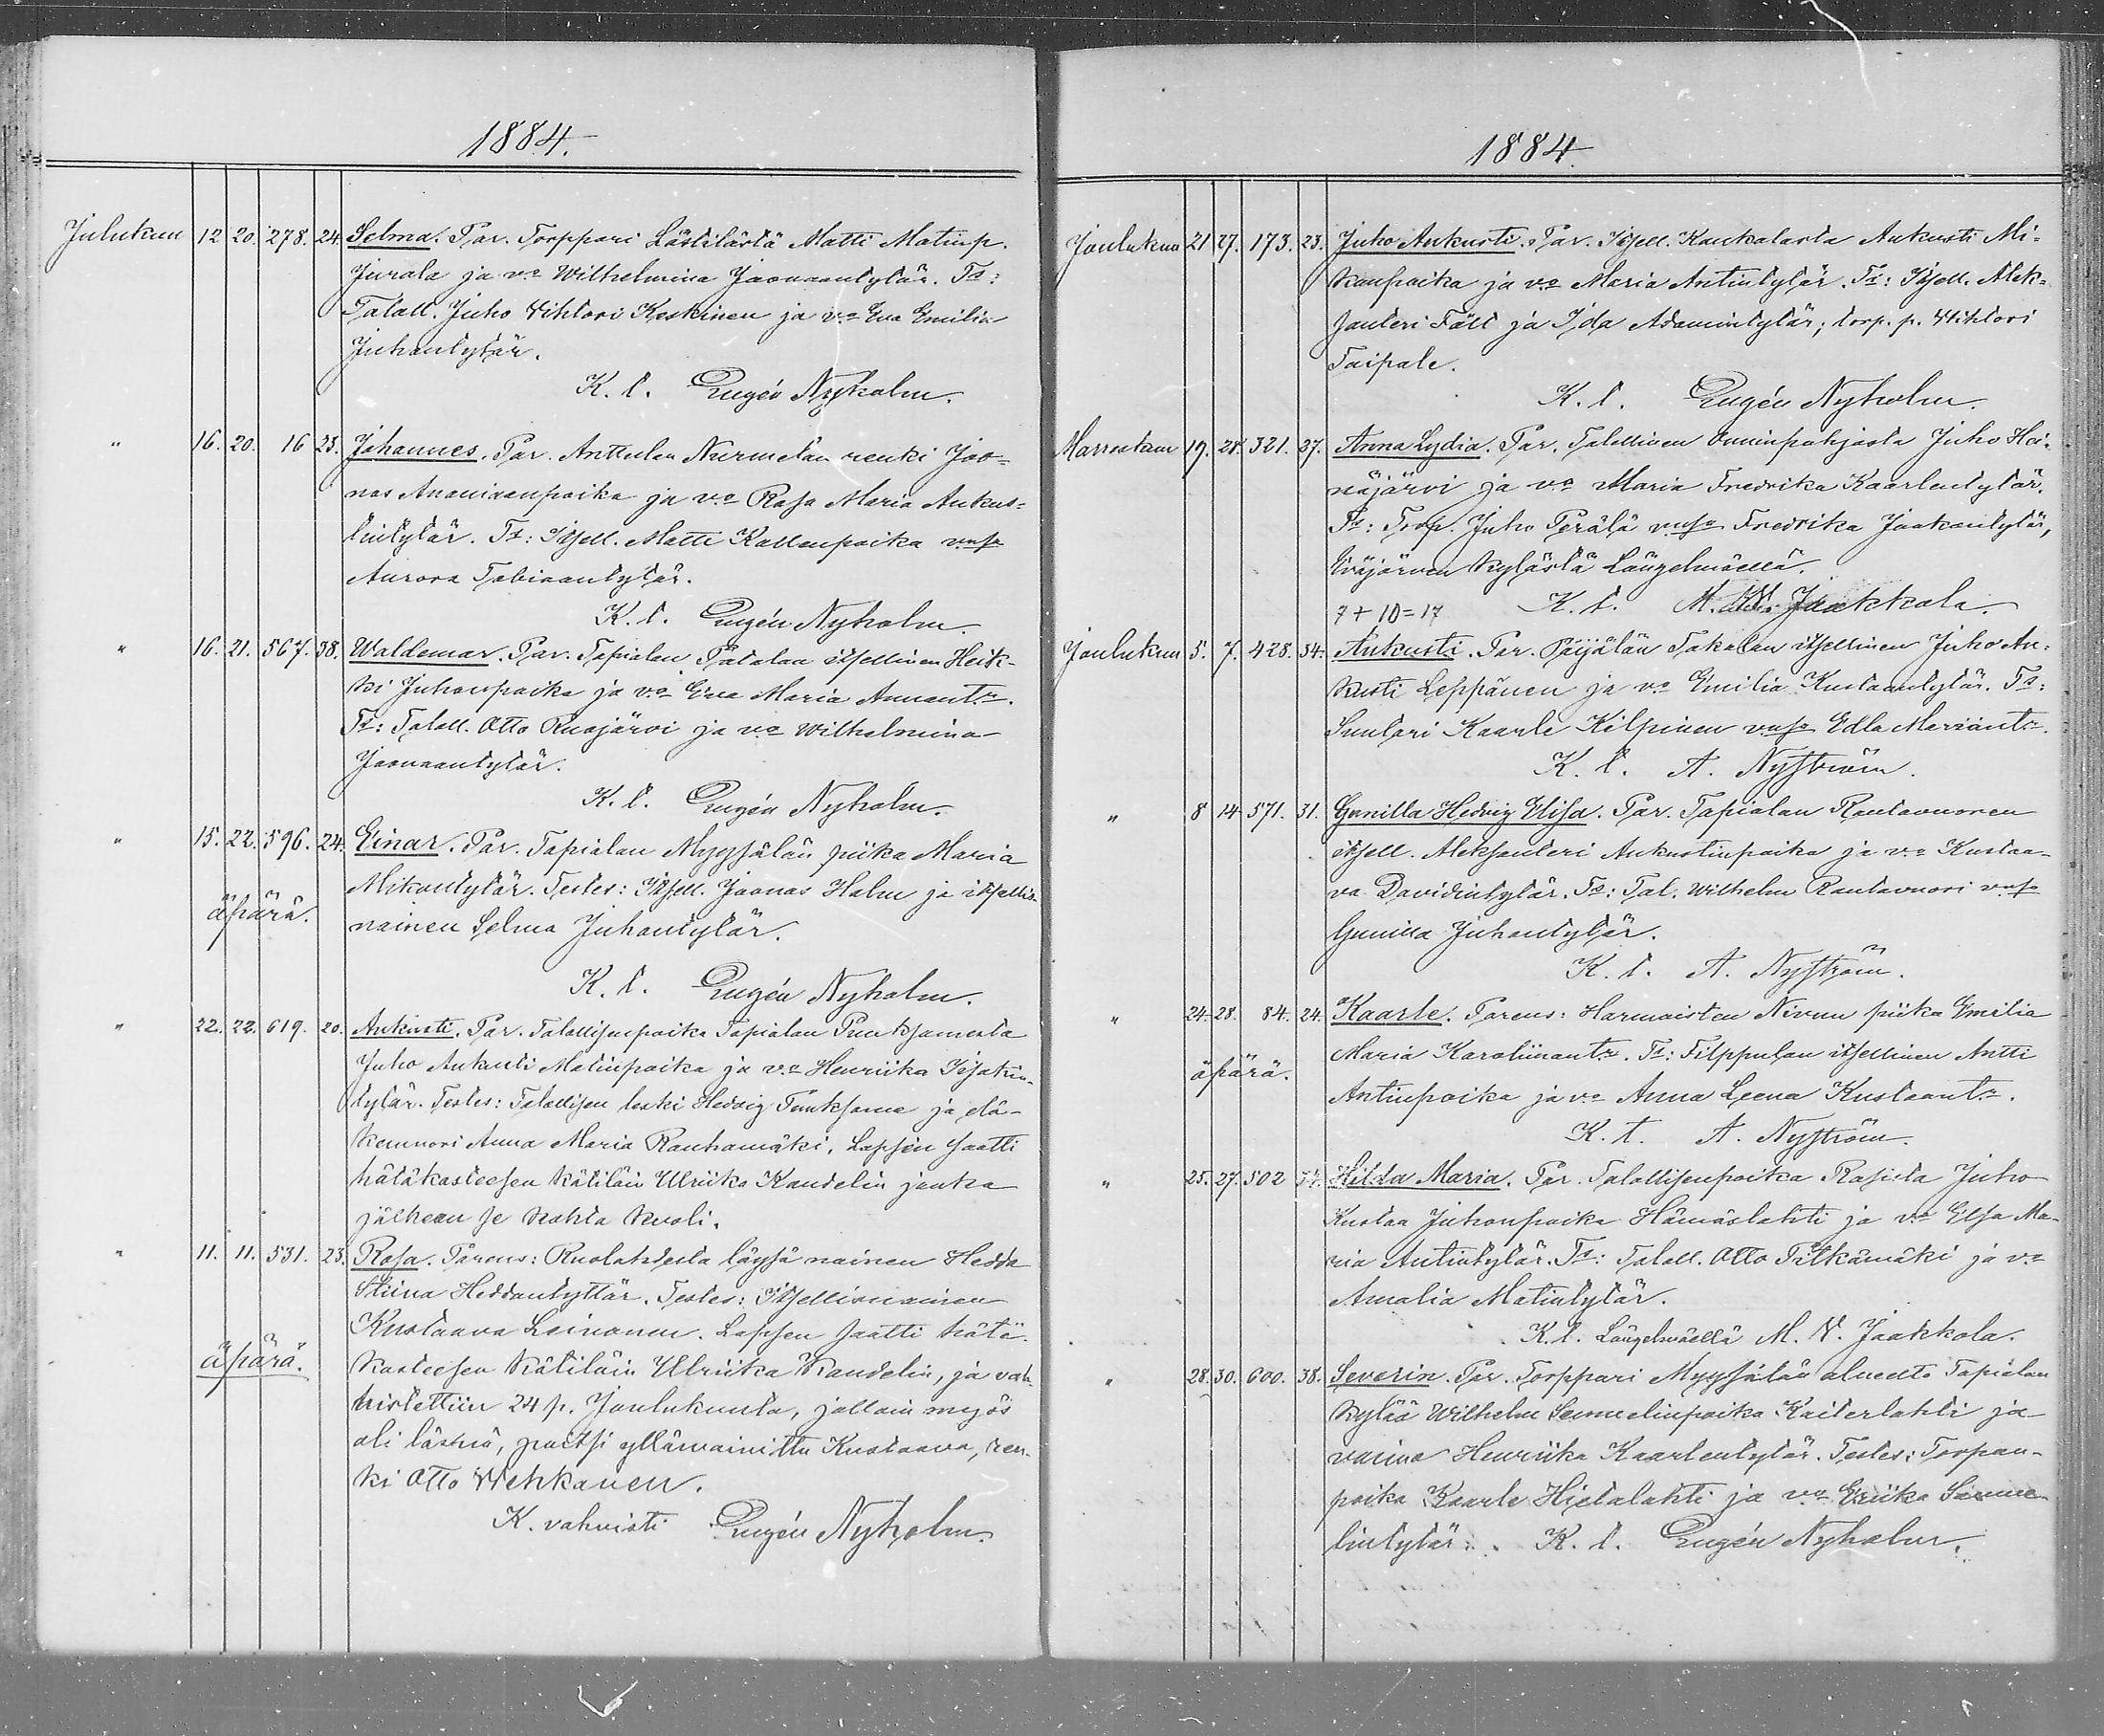 1884.
Julukun 12 20. 278. 24. Selma. Par. Torppari Lästilästä Matti Matinp.
Jurala ja v:o Wilhelmina Joonaantytär. Ts:
Talall. Juho Vihtori Keskinen ja v:o Eva Emilia
Juhontytär.
K. t. Eugén Nyholm.
" 16. 20. 16 23. Johannes. Par. Anttulan Nurmelan renki Joo-
nas Ananiaanpoika ja v:o Rosa Maria Aukus-
tintytär. Ts: Itsell. Matti Kallenpoika v:nsa
Aurora Tobiaantytär.
K. t. Eugén Nyholm.
" 16. 21. 567. 38. Waldemar. Par. Tapialan Patalan itsellinen Heik-
ki Juhonpoika ja v:o Eva Maria Annant:r.
Ts: Talall. Otto Ruojärvi ja v:o Wilhelmina
Joonaantytär.
K. t. Eugén Nyholm.
" 15. 22. 596. 24. Einar. Par. Tapialan Myysälän piika Maria
Mikontytär. Testes: Itsell. Joonas Holm ja itsellis-
äpärä. nainen Selma Juhontytär.
K. t. Eugén Nyholm.
" 22. 22. 619. 20. Aukusti. Par. Talollisenpoika Tapialan Punksamesta
Juho Aukusti Matinpoika ja v:o Henriika Iisakin-
tytär. Testes: Talollisen leski Hedvig Punksame ja elä-
kemuori Anna Maria Rauhamäki. Lapsen saatti
hätäkasteesen kätilöin Ulriika Kandelin jonka
jälkeen se kohta kuoli.
" 11. 11. 531. 23. Rosa. Parens: Ruolahdesta löysä nainen Hedda
Stiina Heddantyttär. Testes: Itsellisnainen
Kustaava Leinonen. Lapsen saatti hätä-
äpärä. kasteesen kätilöin Ulriika Kandelin, ja vah-
vistettiin 24 p. Joulukuuta, jolloin myös
oli läsnä, paitsi yllämainittu Kustaava, ren-
ki Otto Wehkanen.
K. vahvisti Eugén Nyholm.
1884.
Joulukun 21 27. 173. 23. Juho Aukusti. Par. Itsell. Kaukalasta Aukusti Mi-
konpoika ja v:o Maria Antintytär. Ts: Itsell. Alek-
santeri Fält ja Ida Adamintytär; torp. p. Vihtori
Taipale.
K. t. Eugén Nyholm.
Marraskun 19. 28. 321. 27. Anna Lydia. Par. Talollinen Ouninpohjasta Juho Hei-
näjärvi ja v:o Maria Fredrika Kaarlentytär.
Ts: Torp. Juho Perälä v:nsa Fredrika Jaakontytär,
Eväjärven kylästä Längelmäellä.
7 + 10 = 17 K. t. M. W. Jaakkola.
Joulukun 5. 7. 428. 34. Aukusti. Par. Päijälän Takalan itsellinen Juho Au-
kusti Leppänen ja v:o Emilia Kustaantytär. Ts:
Suutari Kaarle Kilpinen v:nsa Edla Mariant:r.
K. t. A. Nyström.
" 8 14 571. 31. Gunilla Hedvig Elisa. Par. Tapialan Rautavuoren
itsell. Aleksanteri Aukustinpoika ja v:o Kustaa-
va Davidintytär. Ts: Tal. Wilhelm Rautavuori v:nsa
Gunilla Juhontytär.
K. t. A. Nyström.
" 24. 28. 84. 24. Kaarle. Parens: Harmaisten Nivun piika Emilia
äpärä. Maria Karoliinant:r. Ts: Filppulan itsellinen Antti
Antinpoika ja v:o Anna Leena Kustaant:r.
K. t. A. Nyström.
" 25. 27. 502 34. Hilda Maria. Par. Talollisenpoika Rasista Juho
Kustaa Juhonpoika Hämäslahti ja v:o Elsa Ma-
ria Antintytär. Ts: Talall. Otto Pitkämäki ja v:o
Amalia Matintytär.
K. t. Längelmäellä M. W. Jaakkola.
" 28. 30. 600. 38. Severin. Par. Torppari Myysälän alueelta Tapialan
kylää Wilhelm Samuelinpoika Kaiterlahti ja
vaimo Henriika Kaarlentytär. Testes: Torpan-
poika Kaarle Hietalahti ja v:o Eriika Samue-
lintytär. K. t. Eugén Nyholm.